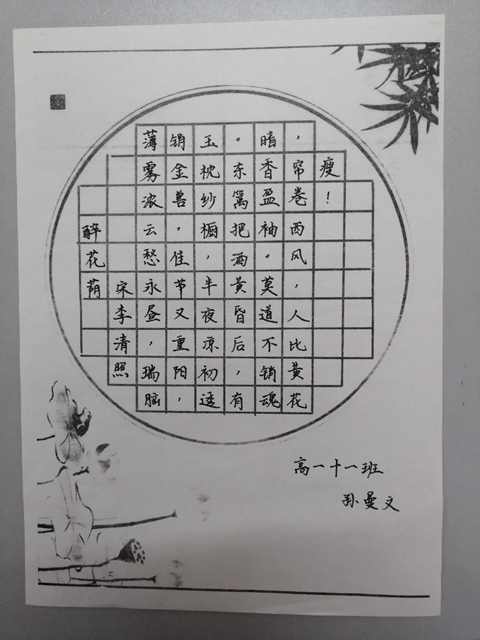 醉花荫
宋李清照
薄雾浓云愁永昼,瑞脑
销金兽。佳节又重阳,
玉枕纱橱,半夜凉初透
。东篱把酒黄昏后,有
暗香盈袖。莫道不销魂
,帘卷西风,人比黄花
瘦!
高一十一班
孙曼文